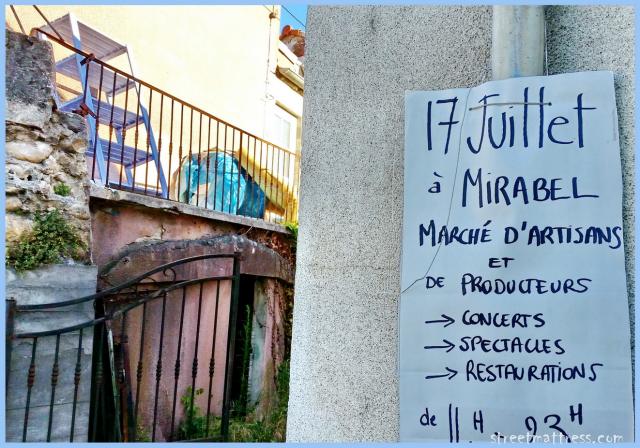 17 Juillet
à MIRABEL
MARCHÉ D'ARTISANS
ET
DE PRODUCTEURS
→ CONCERTS
→ SPECTACLES
→ RESTAURATIONS
de 11H - 23H
streetmattress.com